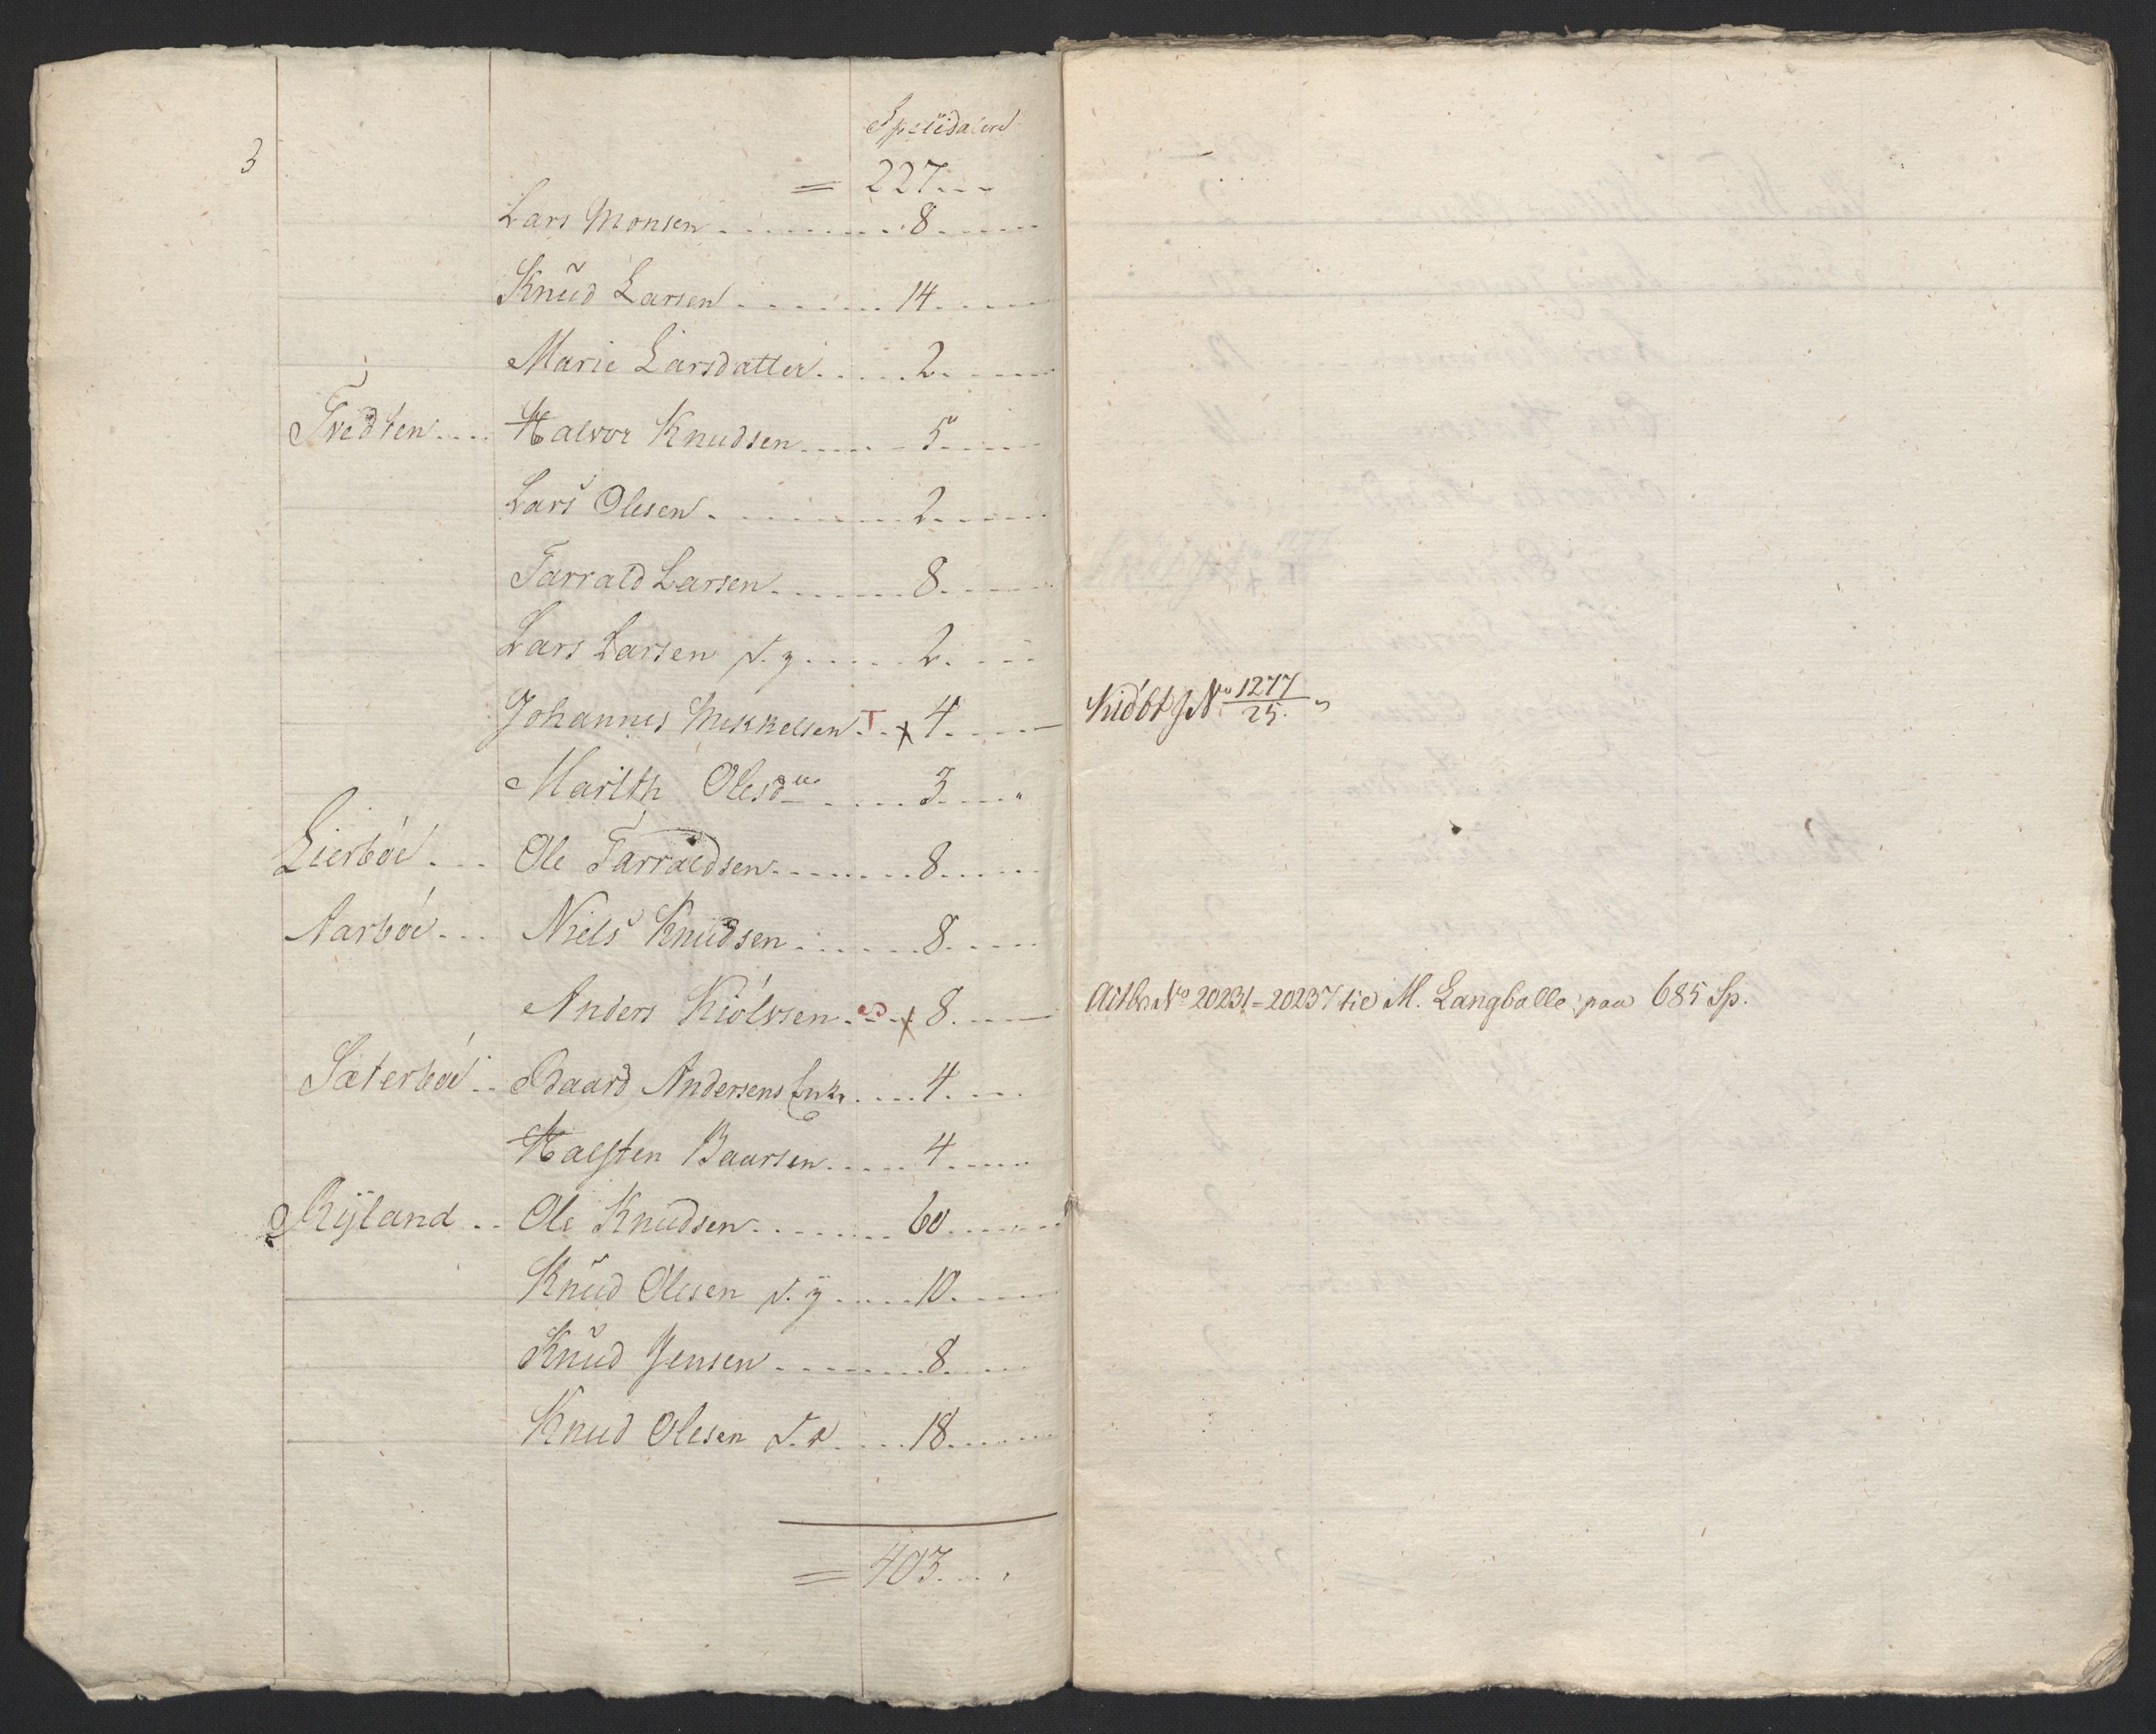 Speciedaler
3
= 227
Lars Monsen 8
Knud Larsen 14
Marie Larsdatter 2
Tvedten Halvor Knudsen 5
Lars Olesen 2
Tarrald Larsen 8
Lars Larsen d. y. 2
Johannes Mikkelsen T x 4 Kiöbt J No 1277/25
Marith Olesdtr 3
Lierböe Ole Tarraldsen 8
Aarböe Niels Knudsen 8
Anders Kiölssen x 8 No 20231 = 20237 til M. Langballe paa 685 Sp.
Sæterböe Odaard Andersens Enke 4
Halsten Baarsen 4
Ryland Ole Knudsen 60
Knud Olesen d. y 10
Knud Jensen 8
Knud Olesen d. æ 18
= 403